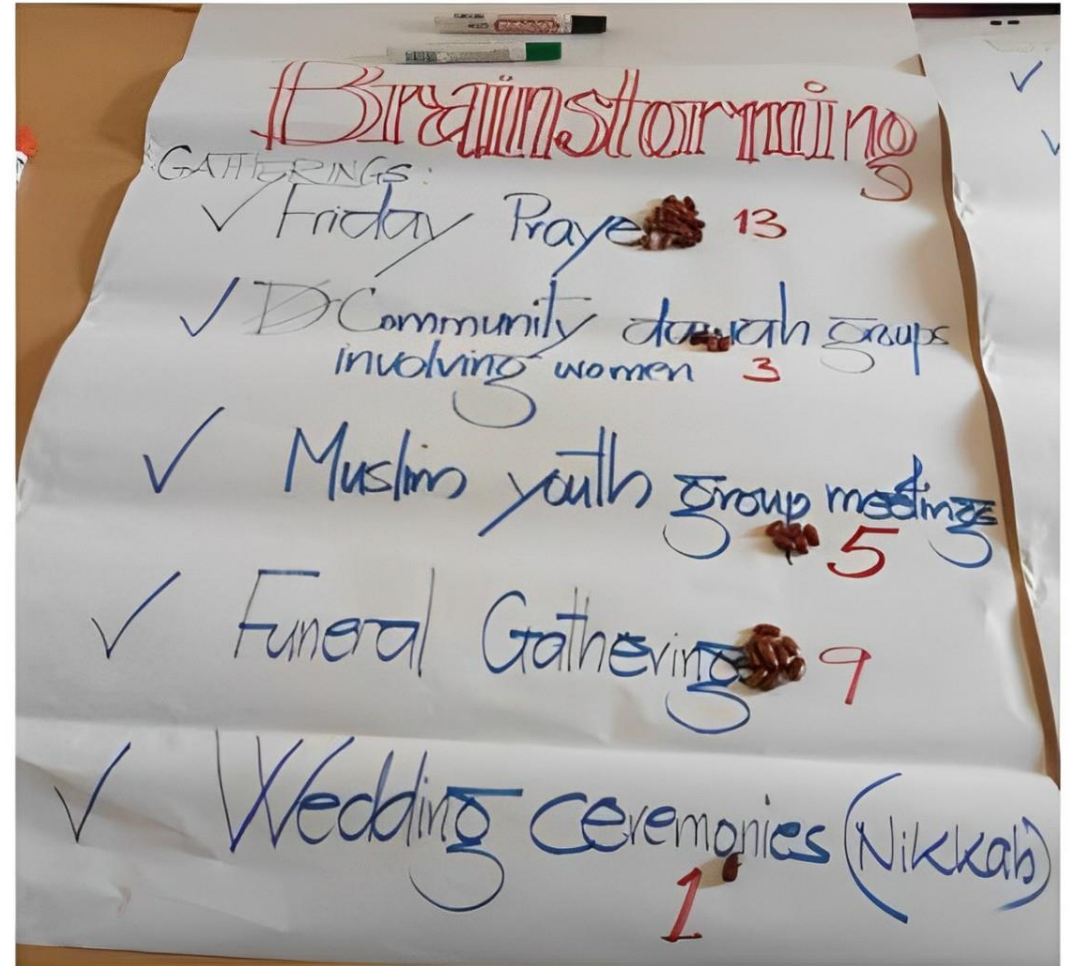 Brainstorming
GATHERINGS:
✓ Friday Praye 13
✓ D Community dawah groups
involving women 3
✓ Muslim youth group meetings
5
✓ Funeral Gathering 9
✓ Wedding ceremonies (Nikkah)
1